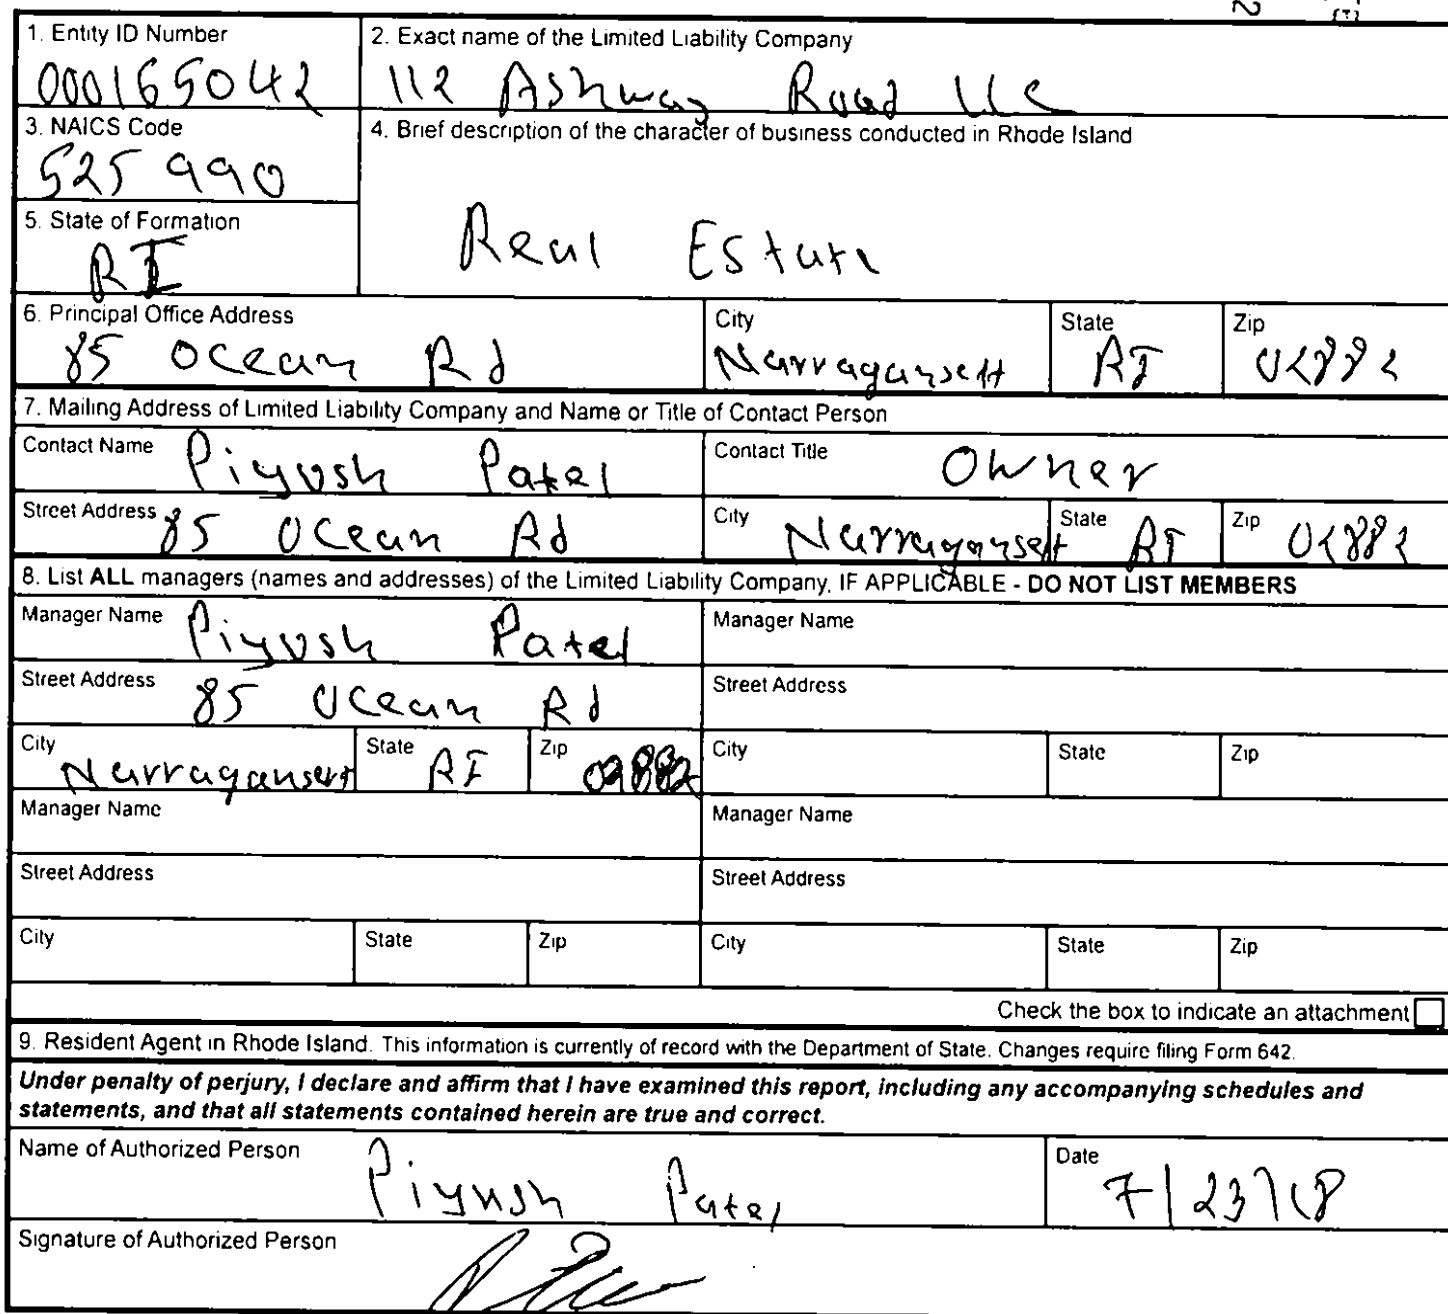 1. Entity ID Number
000165042
2. Exact name of the Limited Liability Company
112 Ashway Road LLC
3. NAICS Code
525 990
4. Brief description of the character of business conducted in Rhode Island
Real Estate
5. State of Formation
RI
6. Principal Office Address
85 Ocean Rd
City
Narragansett
State
RI
Zip
02882
7. Mailing Address of Limited Liability Company and Name or Title of Contact Person
Contact Name Piyush Patel
Contact Title Owner
Street Address 85 Ocean Rd
City Narragansett
State RI
Zip 02882
8. List ALL managers (names and addresses) of the Limited Liability Company, IF APPLICABLE - DO NOT LIST MEMBERS
Manager Name Piyush Patel
Manager Name
Street Address 85 Ocean Rd
Street Address
City Narragansett
State RI
Zip 02882
City
State
Zip
Manager Name
Manager Name
Street Address
Street Address
City
State
Zip
City
State
Zip
Check the box to indicate an attachment
9. Resident Agent in Rhode Island. This information is currently of record with the Department of State. Changes require filing Form 642.
Under penalty of perjury, I declare and affirm that I have examined this report, including any accompanying schedules and
statements, and that all statements contained herein are true and correct.
Name of Authorized Person Piyush Patel
Date 7/23/18
Signature of Authorized Person